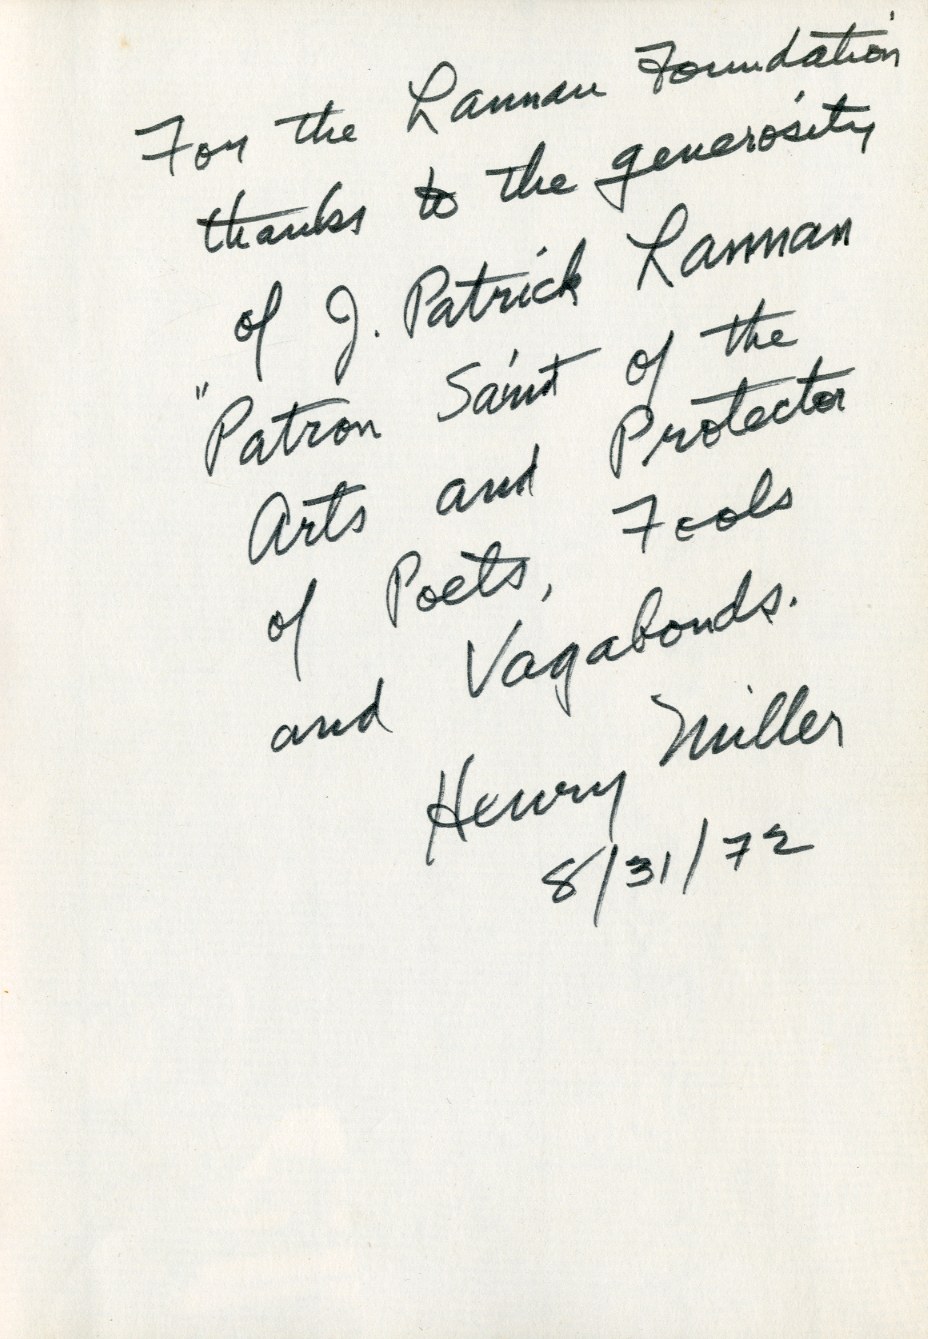 For the Lannan Foundation
thanks to the generosity
of J. Patrick Lannan
"Patron Saint of the
Arts and Protector
of Poets, Fools
and Vagabonds.
Henry Miller
8/31/72